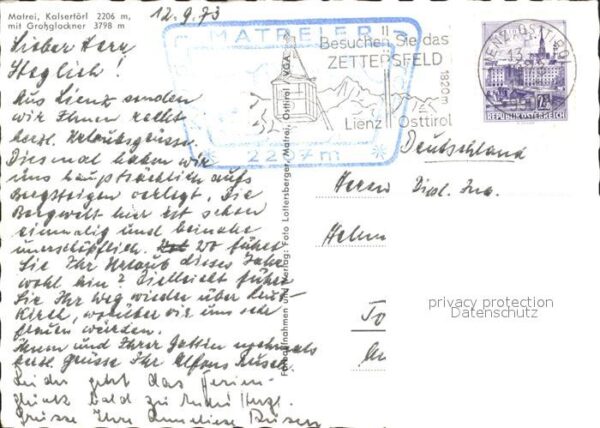 Matrei, Kalsertörl 2206 m,
mit Großglockner 3798 m
12.9.73
Lieber Herr
Heglich!
Aus Lienz senden
wir Ihnen
herzl. Urlaubsgrüsse.
Diesmal haben wir
uns hauptsächlich aufs
Bergsteigen verlegt. Die
Bergwelt hier ist schon
einmalig und beinahe
unerschöpflich. Wo führt
Sie Ihr Urlaub dieses Jahr
wohl hin? Vielleicht führt
Sie Ihr Weg wieder über
kirch, worüber wir uns sehr
freuen würden.
Ihnen und Ihrer Gattin nochmals
herzl. Grüsse Ihr Alfons
Leider geht das Ferien-
glück bald zu Ende! Herzl.
Grüsse Ihre Anneliese
MATREIER
2207m
Besuchen Sie das
ZETTERSFELD
1820 m
Lienz Osttirol
LIENZ, OSTTIROL
REPUBLIK ÖSTERREICH
Farbaufnahmen und Verlag: Foto Lottersberger, Matrei, Osttirol / VGA
Deutschland
Herrn Dipl. Ing.
privacy protection
Datenschutz